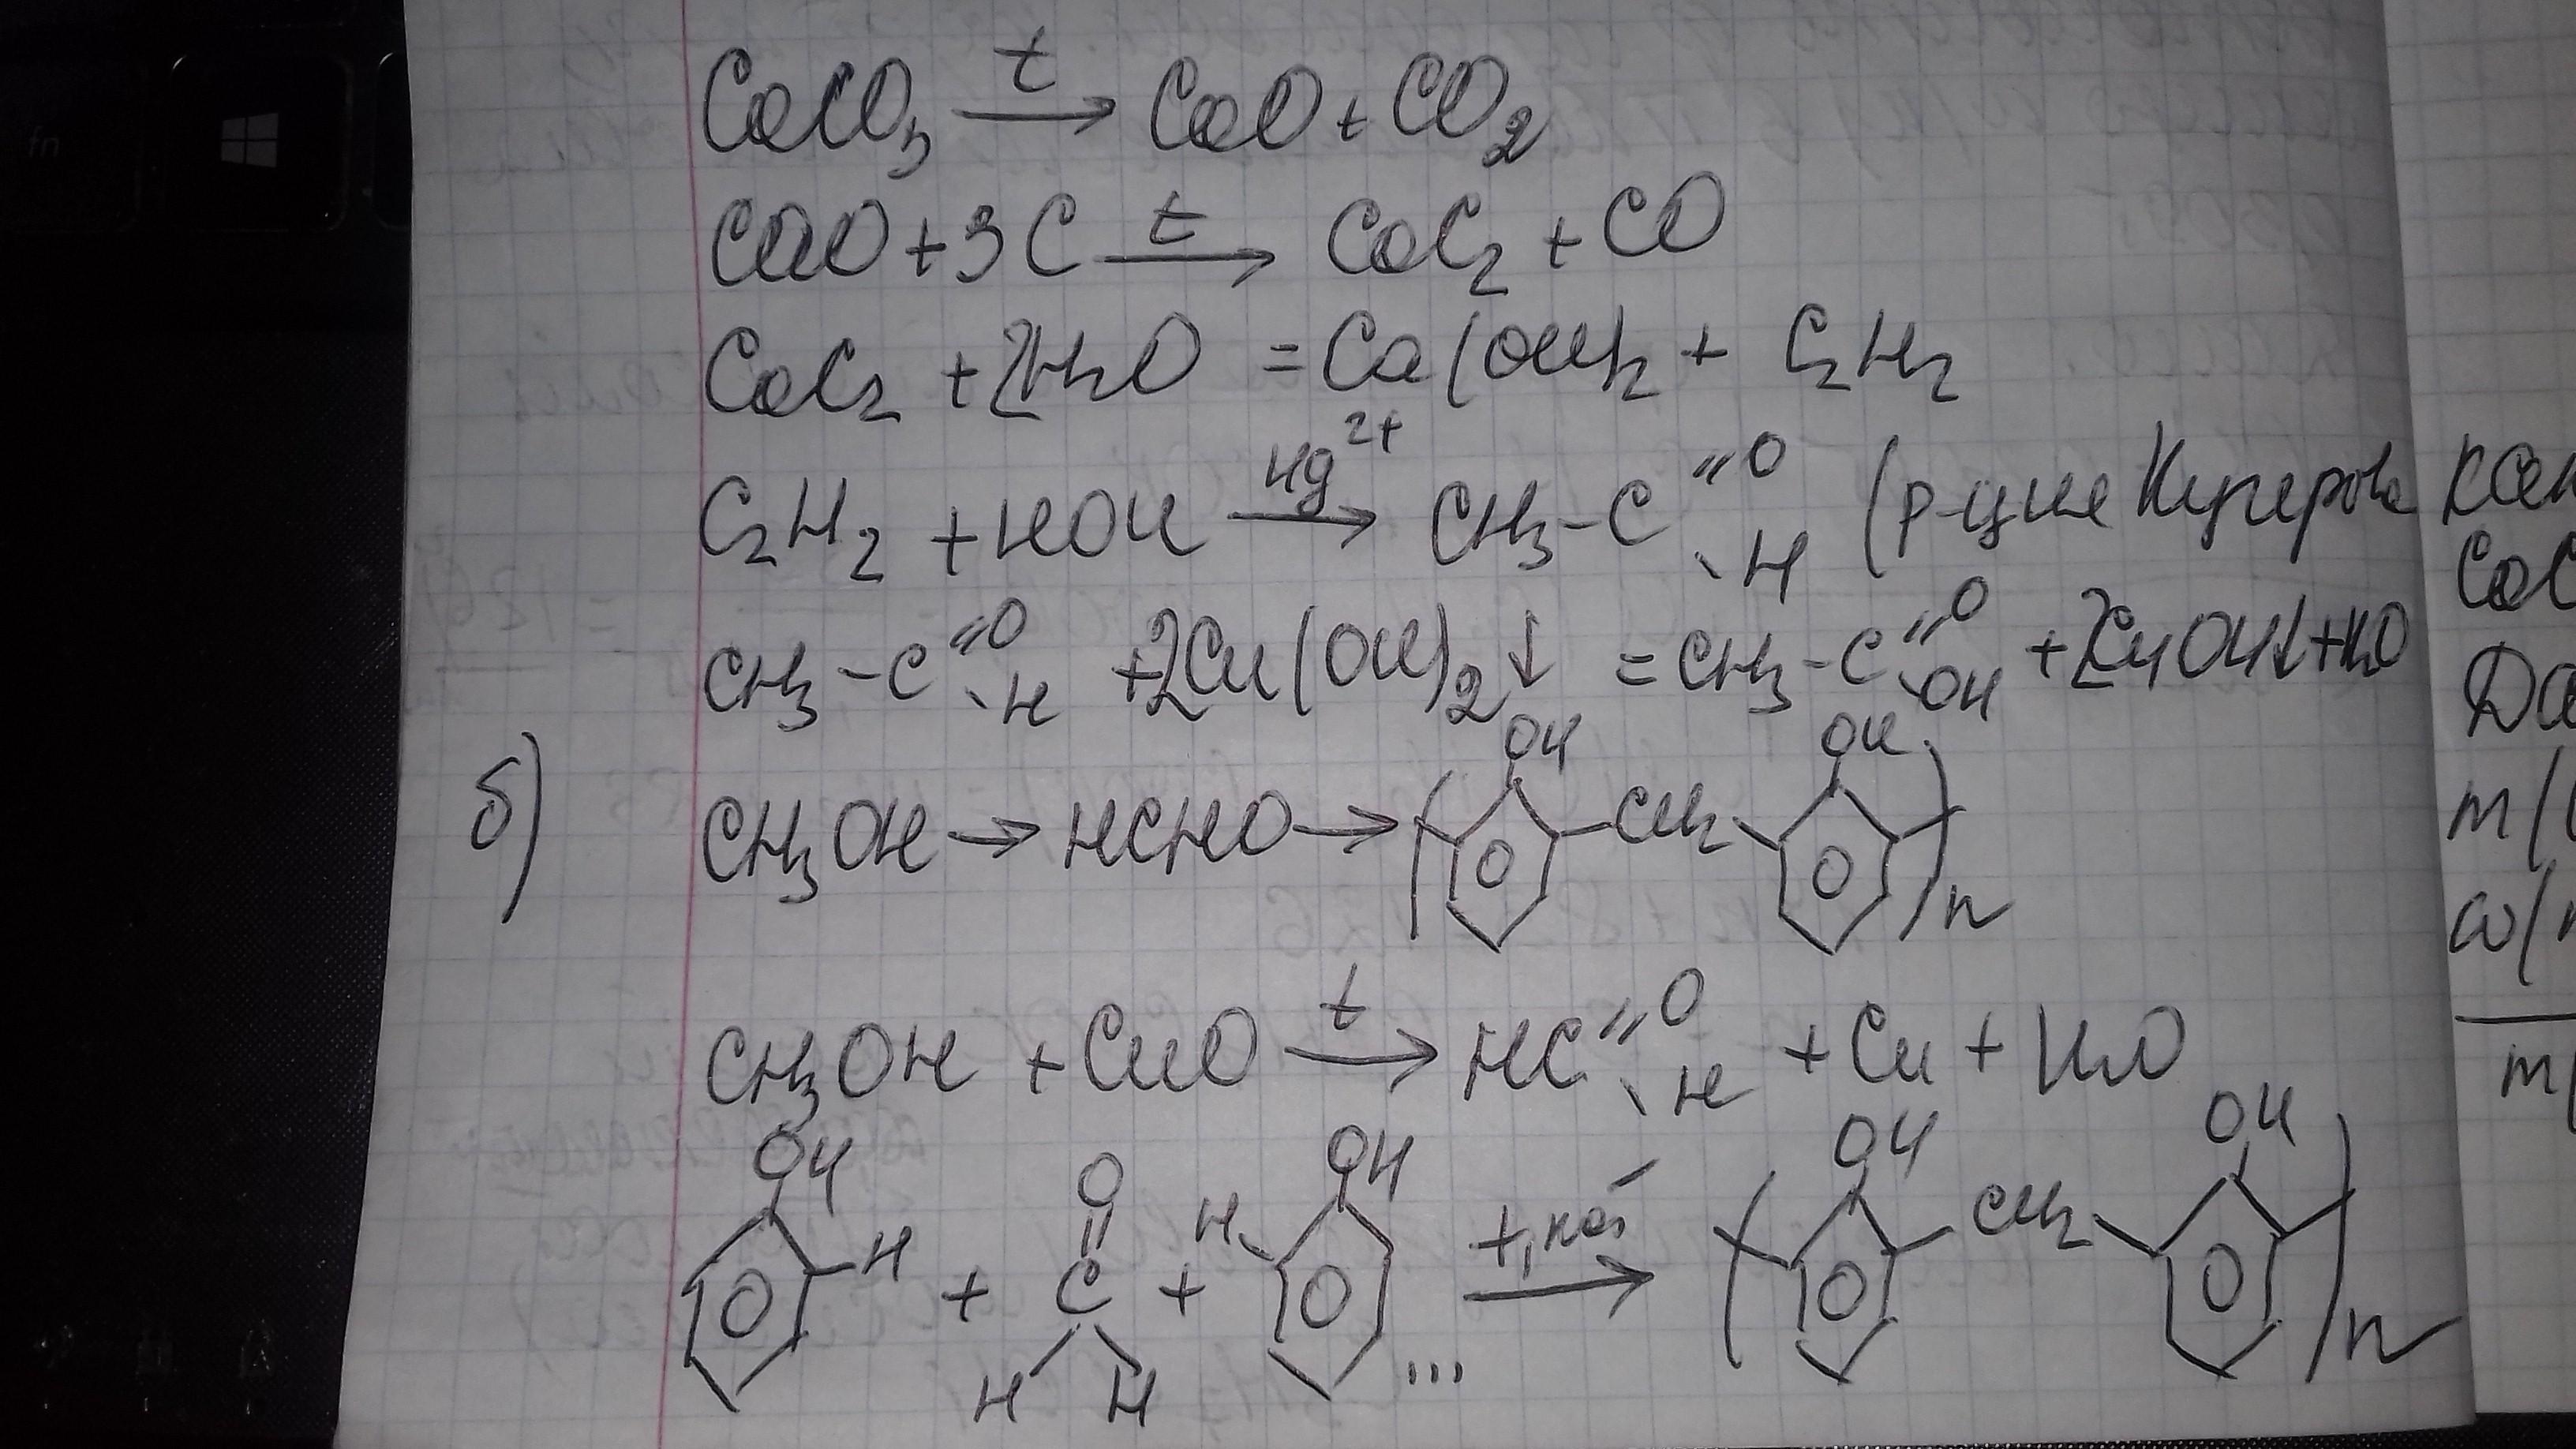 CaCO₃ →(t) CaO + CO₂
CaO + 3C →(t) CaC₂ + CO
CaC₂ + 2H₂O = Ca(OH)₂ + C₂H₂
C₂H₂ + HOH →(Hg²⁺) CH₃–C(=O)–H (р-ция Кучерова
CH₃–C(=O)–H + 2Cu(OH)₂↓ = CH₃–C(=O)–OH + 2CuOH↓ + H₂O
б) CH₃OH → HCHO → ( OH –CH₂– OH )n
CH₃OH + CuO →(t) HC(=O)–H + Cu + H₂O
OH H + O=C H H + H OH ... →(t, ) ( OH –CH₂– OH )n
CaC
m(
ω(
m(
fn